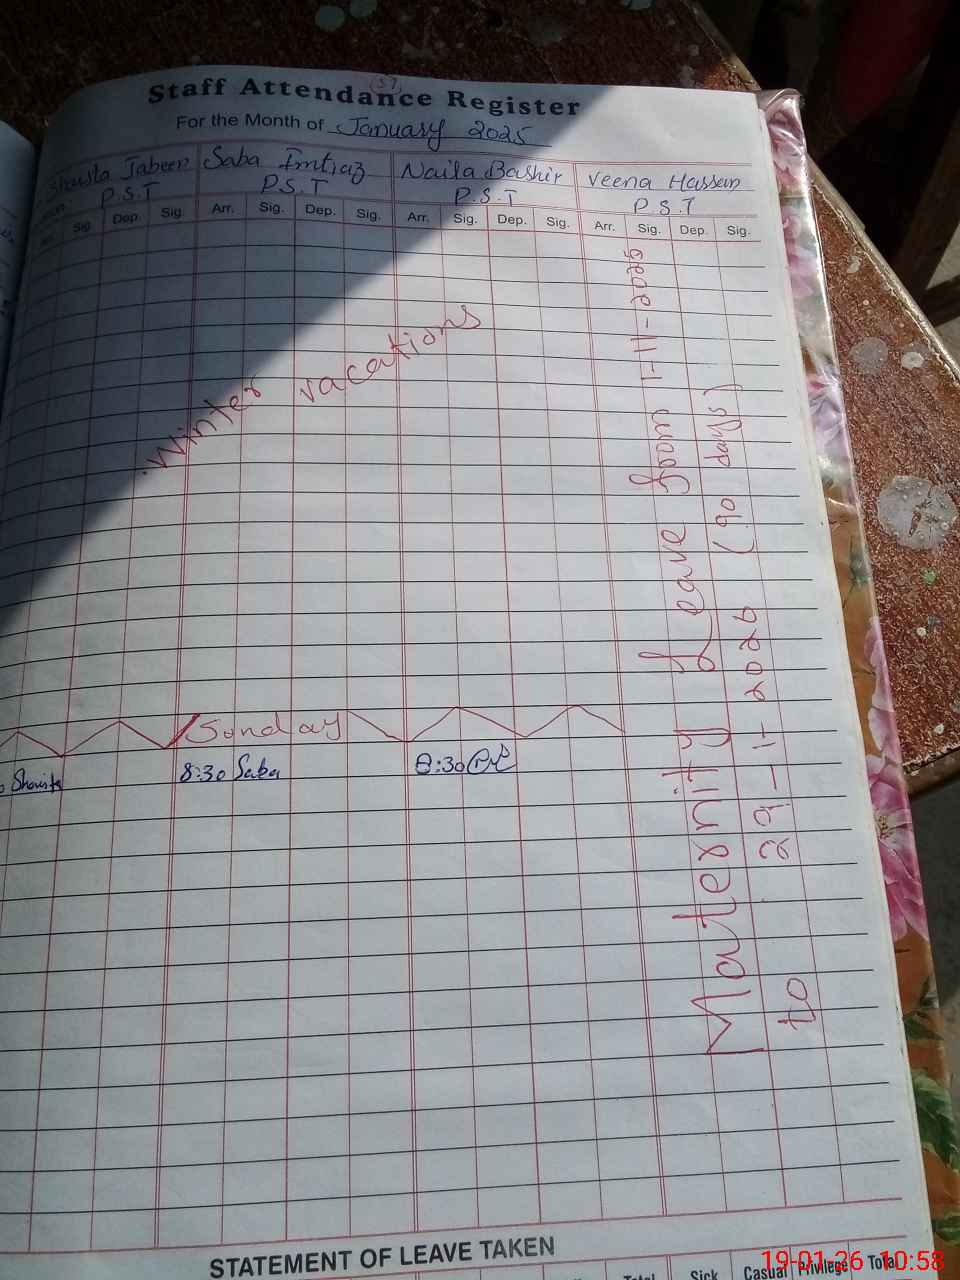 (57)
Staff Attendance Register
For the Month of January 2025
Shaista Jabeen Saba Imtiaz Naila Bashir Veena Hassan
P.S.T P.S.T P.S.T P.S.T
Sig. Dep. Sig. Arr. Sig. Dep. Sig. Arr. Sig. Dep. Sig. Arr. Sig. Dep. Sig.
Winter vacations
Maternity Leave from 1-11-2025
to 29-1-2026 (90 days)
Sunday
Shaista 8:30 Saba 8:30
STATEMENT OF LEAVE TAKEN
Total Sick Casual Privilege Total
19-01-26 10:58